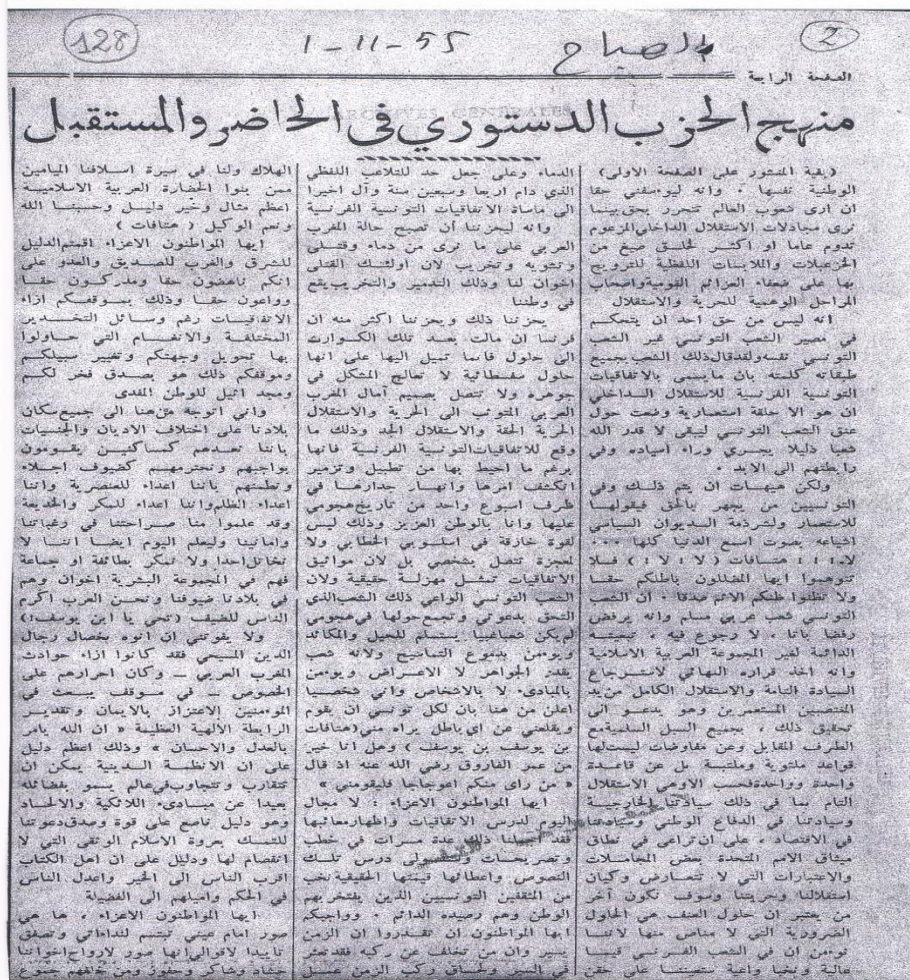 128
1-11-55
الصباح
2
الصفحة الرابعة
منهج الحزب الدستوري في الحاضر والمستقبل
(بقية المنشور على الصفحة الاولى)
الوطنية نفسها . وانه ليؤسفني حقا
ان ارى شعوب العالم تتحرر بحق بينما
نرى مجادلات الاستقلال الداخلي المزعوم
تدوم عاما او اكثر لخلق صيغ من
الخزعبلات والملابسات اللفظية للترويج
بها على ضعفاء العزائم القومية واصحاب
المراحل الوهمية للحرية والاستقلال
انه ليس من حق احد ان يتحكم
في مصير الشعب التونسي غير الشعب
التونسي نفسه ولقد قال ذلك الشعب بجميع
طبقاته كلمته بان ما يسمى بالاتفاقيات
التونسية الفرنسية للاستقلال الداخلي
ان هو الا حلقة استعمارية وضعت حول
عنق الشعب التونسي ليبقى لا قدر الله
شعبا ذليلا يجري وراء اسياده وفي
رابطتهم الى الابد .
ولكن هيهات ان يتم ذلك وفي
التونسيين من يجهر بالحق فيقولها
للاستعمار ولشرذمة الديوان السياسي
اشياعه بصوت اسمع الدنيا كلها ...
لا..!! هتافات (لا ! لا !) فلا
تتوهموا ايها المضللون باطلكم حقا
ولا تظنوا ظنكم الاثم صدقا . ان الشعب
التونسي شعب عربي مسلم وانه يرفض
رفضا باتا ، لا رجوع فيه ، تبعيته
الدائمة لغير المجموعة العربية الاسلامية
وانه اتخذ قراره النهائي لاسترجاع
السيادة التامة والاستقلال الكامل من يد
المغتصبين المستعمرين وهو يدعو الى
تحقيق ذلك ، بجميع السبل السلمية مع
الطرف المقابل وعن مفاوضات ليست لها
قواعد ملتوية وملتبسة بل عن قاعدة
واحدة وواحدة فحسب الا وهي الاستقلال
التام بما في ذلك سيادتنا الخارجية
وسيادتنا في الدفاع الوطني وسيادتنا
في الاقتصاد ، على ان تراعى في نطاق
ميثاق الامم المتحدة بعض المجاملات
والاعتبارات التي لا تتعارض وكيان
استقلالنا وحريتنا وسوف نكون آخر
من يعتبر ان حلول العنف هي الحلول
الضرورية التي لا مناص منها لاننا
نؤمن ان في الشعب الفرنسي قيما
حقن
الدماء وعلى جعل حد للتلاعب اللفظي
الذي دام اربعا وسبعين سنة وآل اخيرا
الى ماساة الاتفاقيات التونسية الفرنسية
وانه ليحزننا ان تصبح حالة المغرب
العربي على ما نرى من دماء وقتلى
وتشويه وتخريب لان اولئك القتلى
اخوان لنا وذلك التدمير والتخريب يقع
في وطننا
يحزننا ذلك ويحزننا اكثر منه ان
فرنسا ان مالت بعد تلك الكوارث
الى حلول فانما تميل اليها على انها
حلول سفسطائية لا تعالج المشكل في
جوهره ولا تتصل بصميم آمال المغرب
العربي المتوثب الى الحرية والاستقلال
الحرية الحقة والاستقلال الجد وذلك ما
وقع للاتفاقيات التونسية الفرنسية فانها
برغم ما احيط بها من تطبيل وتزمير
انكشف امرها وانهار جدارها في
ظرف اسبوع واحد من تاريخ هجومي
عليها وانا بالوطن العزيز وذلك ليس
لقوة خارقة في اسلوبي الخطابي ولا
لمعجزة تتصل بشخصي بل لان مواثيق
الاتفاقيات تمثل مهزلة حقيقية ولان
الشعب التونسي الواعي ذلك الشعب الذي
التحق بدعوتي وتجمع حولها في هجومي
لم يكن شعبا غبيا يستسلم للحيل والمكائد
ويؤمن بدموع التماسيح ولانه شعب
يقدر الجواهر لا الاعراض ويؤمن
بالمبادىء لا بالاشخاص واني شخصيا
اعلن من هنا بان لكل تونسي ان يقوم
ويقلعني عن اي باطل يراه مني (هتافات
بن يوسف بن يوسف) وهل انا خير
من عمر الفاروق رضي الله عنه اذ قال
« من راى منكم اعوجاجا فليقومني »
ايها المواطنون الاعزاء : لا مجال
اليوم لدرس الاتفاقيات واظهار معائبها
فقد ذلك عدة مرات في خطب
وتصريحات درس تلك
النصوص واعطائها قيمتها الحقيقية نخب
من المثقفين التونسيين الذين يفتخر بهم
الوطن وهم رصيده الدائم . وواجبكم
ايها المواطنون ان تقدروا ان الزمن
يسير وان من تخلف عن ركبه فقد تعثر
في ركب الزمن
الهلاك ولنا في سيرة اسلافنا الميامين
ممن بنوا الحضارة العربية الاسلامية
اعظم مثال وخير دليل وحسبنا الله
ونعم الوكيل ( هتافات )
ايها المواطنون الاعزاء اقمتم الدليل
للشرق والغرب للصديق والعدو على
انكم ناهضون حقا ومدركون حقا
وواعون حقا وذلك بموقفكم ازاء
الاتفاقيات رغم وسائل التخدير
المختلفة والانغام التي حاولوا
بها تحويل وجهتكم وتغيير سبيلكم
وموقفكم ذلك هو بصدق فخر لكم
ومجد اثيل للوطن المفدى
واني اتوجه من هنا الى جميع سكان
بلادنا على اختلاف الاديان والجنسيات
باننا نعدهم كساكنين يقومون
بواجبهم ونحترمهم كضيوف اجلاء
ونطمئنهم باننا اعداء للعنصرية واننا
اعداء الظلم واننا اعداء للمكر والخديعة
وقد علموا منا صراحتنا في رغباتنا
وامانينا وليعلم اليوم ايضا اننا لا
نخاتل احدا ولا نمكر بطائفة او جماعة
فهم في المجموعة البشرية اخوان وهم
في بلادنا ضيوفنا ونحن العرب اكرم
الناس للضيف (تحي يا ابن يوسف!)
ولا يفوتني ان انوه بخصال رجال
الدين المسيحي فقد كانوا ازاء حوادث
المغرب العربي ــ وكان احرارهم على
الخصوص ــ في موقف يبعث في
المؤمنين الاعتزاز بالايمان وتقدير
الرابطة الالهية العظيمة « ان الله يامر
بالعدل والاحسان » وذلك اعظم دليل
على ان الانظمة الدينية يمكن ان
تتقارب وتتجاوب في عالم يسمو بفضائله
بعيدا عن مبادىء اللائكية والالحاد
وهو دليل ناصع على قوة وصدق دعوتنا
للتمسك بعروة الاسلام الوثقى التي لا
انفصام لها ودليل على ان اهل الكتاب
اقرب الناس الى الخير واعدل الناس
في الحكم واميلهم الى الفضيلة
ايها المواطنون الاعزاء ، ها هي
صور امام عيني تبتسم لنداءاتي وتصفق
تاييدا لاقوالي انها صور لارواح اخواننا
حشاد وشاكر وحفوز ومن